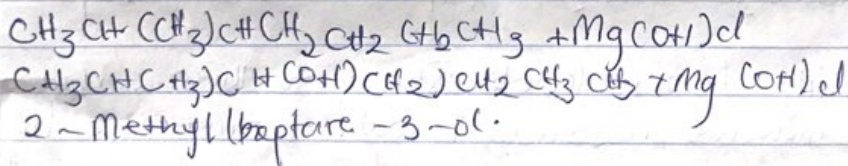 CH3CH(CH3)CHCH2CH2CH2CH3 + Mg(OH)Cl
CH3CHCH3)CH(OH)CH2)CH2CH3CH3 + Mg(OH)Cl
2-Methylheptare-3-ol.